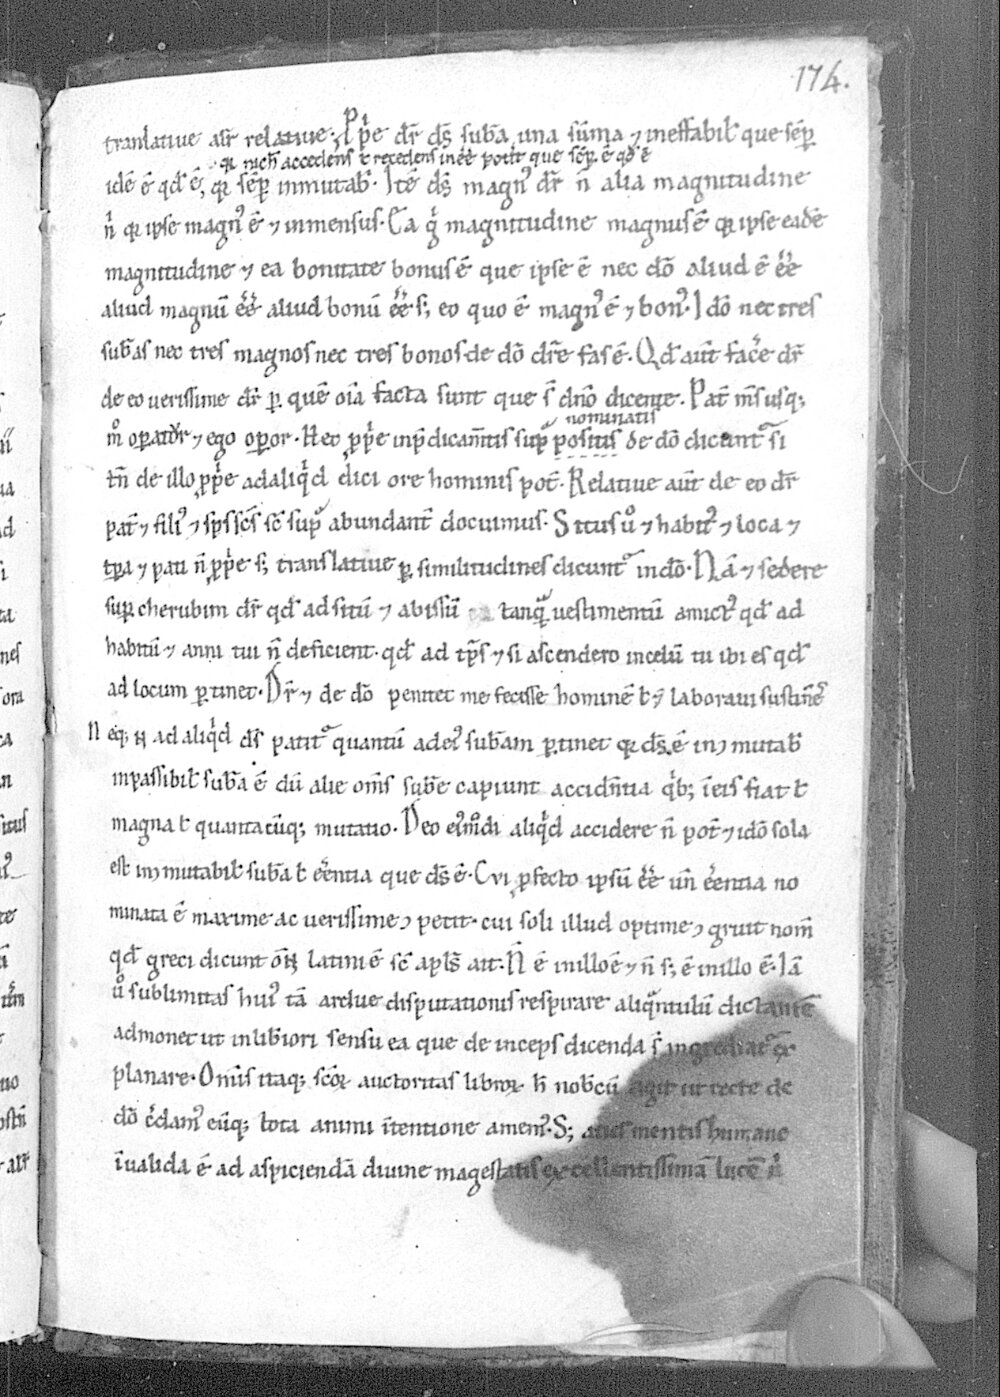 174.
tranlatiue aut̄ relatiue. Pp̄e dr̄ dс̄ sub̄a una sūma ⁊ ineffabil' que sēp
qr nich̄ accedens ł recedens inēe potit que sēp ē qd̄ ē
idē ē qd̄ ē, qr sēp inmutab'. Itē ds̄ magn' dr̄ n̄ alia magnitudine
n̄ qr ipse magn' ē ⁊ inmensus. Ea g̊ magnitudine magnus ē qr ipse eadē
magnitudine ⁊ ea bonitate bonus ē que ipse ē nec dō aliud ē ēe
aliud magnū ēe aliud bonū ēe s; eo quo ē magn' ē ⁊ bon'. Idō nec tres
sub̄as nec tres magnos nec tres bonos de dō dr̄e fas ē. Qd̄ aut̄ fac̄e dr̄
de eo uerissime dr̄ p quē oīa facta sunt que s̄ dn̄o dicente. Pat̄ m̄s usq;
nominatis
m̊ operatur ⁊ ego opor. Reo pp̄e inp̄dicam̄tis sup̄ positis de dō dicunt' si
tn̄ de illo pp̄e ad aliq̄d dici ore hominis pot̄. Relatiue aut̄ de eo dr̄
pat̄ ⁊ fili' ⁊ sps̄ sc̄s sc̄ sup̄ abundant̄ docuimus. Situs ů ⁊ habit' ⁊ loca ⁊
tp̄a ⁊ pati n̄ pp̄e s; translatiue p similitudines dicunt' in dō. Nā ⁊ sedere
sup cherubim dr̄ qd̄ ad sitū ⁊ abissū tanq̄ uestimentū amict' qd̄ ad
habitū ⁊ anni tui n̄ deficient. qd̄ ad tp̄s ⁊ si ascendero in celū tu ibi es qd̄
ad locum ptinet. Dr̄ ⁊ de dō penitet me fecisse hominē ł ⁊ laboraui sustinēs
Neq; n̄ ad aliq̄d ds̄ patit' quantū ad ei' sub̄am ptinet qr ds̄ ē inmutab'
inpassibil' sub̄a ē dū alie om̄s sub̄e capiunt accid̄ntia q̄b; ī eis fiat ł
magna ł quantacūq; mutatio. Deo ei'm̄di aliq̄d accidere n̄ pot̄ ⁊ idō sola
est inmutabil' sub̄a ł ēentia que ds̄ ē. Cui pfecto ipsū ēe un̄ ēentia no
minata ē maxime ac uerissime ɔpetit. cui soli illud optime ɔgruit nom̄
qd̄ greci dicunt ōn latini ē sc̄ apls̄ ait. N̄ ē in illo ē ⁊ n̄ s; ē in illo ē. Iā
ů sublimitas hui' tā ardue disputationis respirare aliq̄ntulū dictantē
admonet ut in lib̄iori sensu ea que de inceps dicenda s̄ ingrediat' ex
planare. Om̄is itaq; scōr auctoritas libror h̄ nob'cū agit ut recte de
dō c̄dam' eūq; tota animi ītentione amem'. S; acies mentis humane
īualida ē ad aspiciendā diuine magestatis excellentissimā lucē n̄